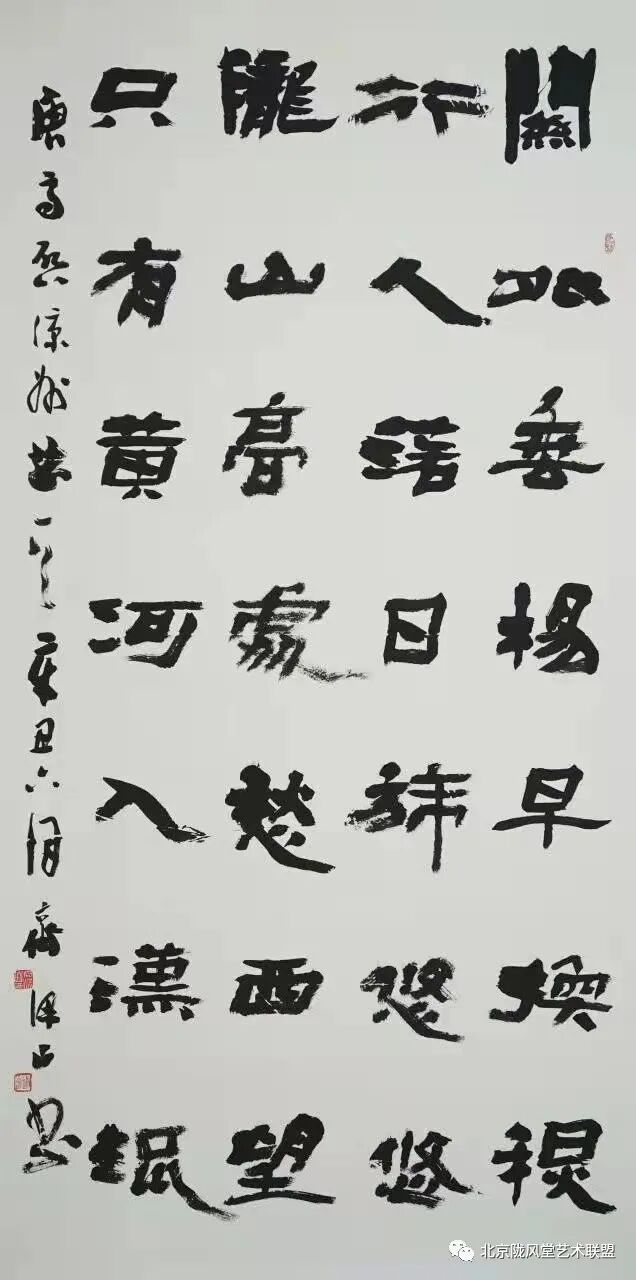 關外垂楊早換秋
行人落日旆悠悠
隴山高處愁西望
只有黃河入漢流
唐高啓涼州 辛丑六月 書
北京陇风堂艺术联盟